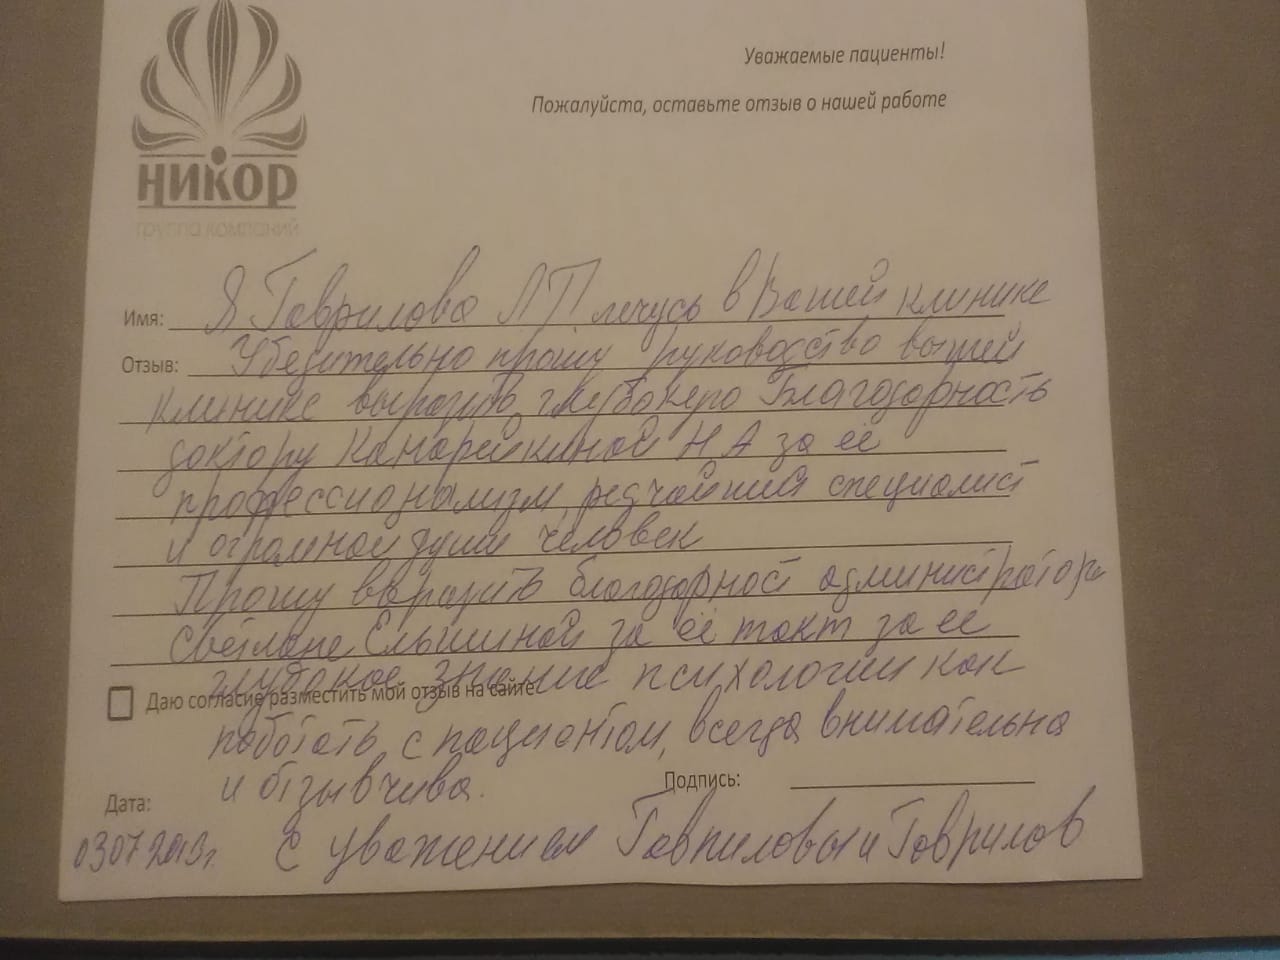 Уважаемые пациенты!
Пожалуйста, оставьте отзыв о нашей работе
НИКОР
группа компаний
Имя: Я Гаврилова Л П лечусь в Вашей клинике
Отзыв: Убедительно прошу руководство вышей
клинике выразить глубокую Благодарность
доктору Канарейкиной Н А за её
профессионализм, редчайший специалист
и огромной души человек
Прошу выразить благодарност администратора
Светлане Елышиной за её такт за её
глубокое знание психологии как
Даю согласие разместить мой отзыв на сайте
работать с пациентом, всегда внимательна
и отзывчива.
Подпись:
Дата:
03 07 2013г. С уважением Гавриловы и Гаврилов